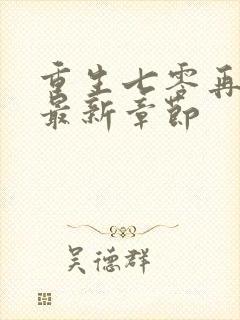 重生七零再
最新章节
吴德群